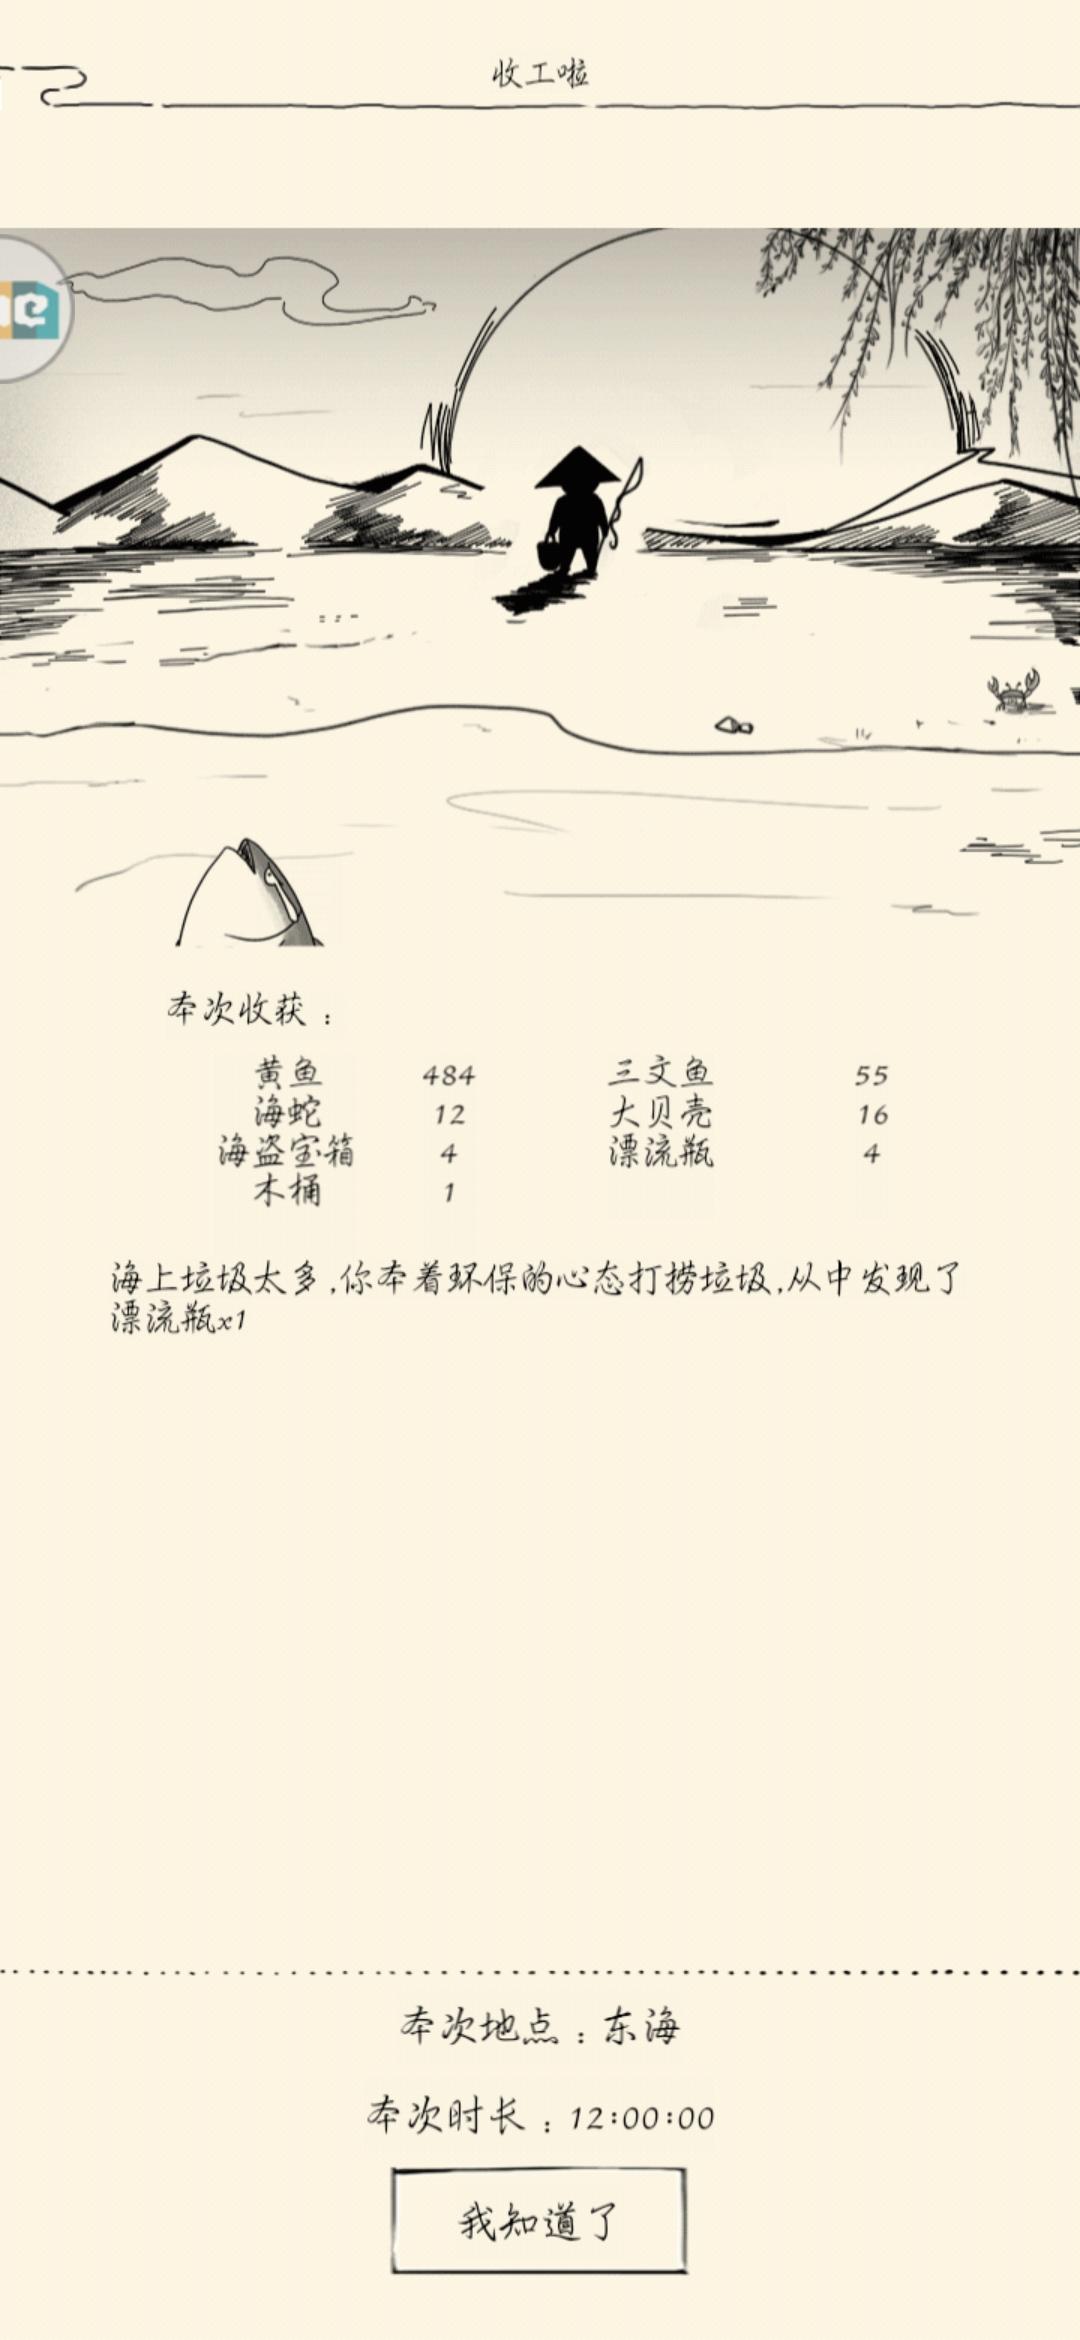 收工啦
本次收获：
黄鱼 484 三文鱼 55
海蛇 12 大贝壳 16
海盗宝箱 4 漂流瓶 4
木桶 1
海上垃圾太多,你本着环保的心态打捞垃圾,从中发现了
漂流瓶x1
本次地点：东海
本次时长：12:00:00
我知道了